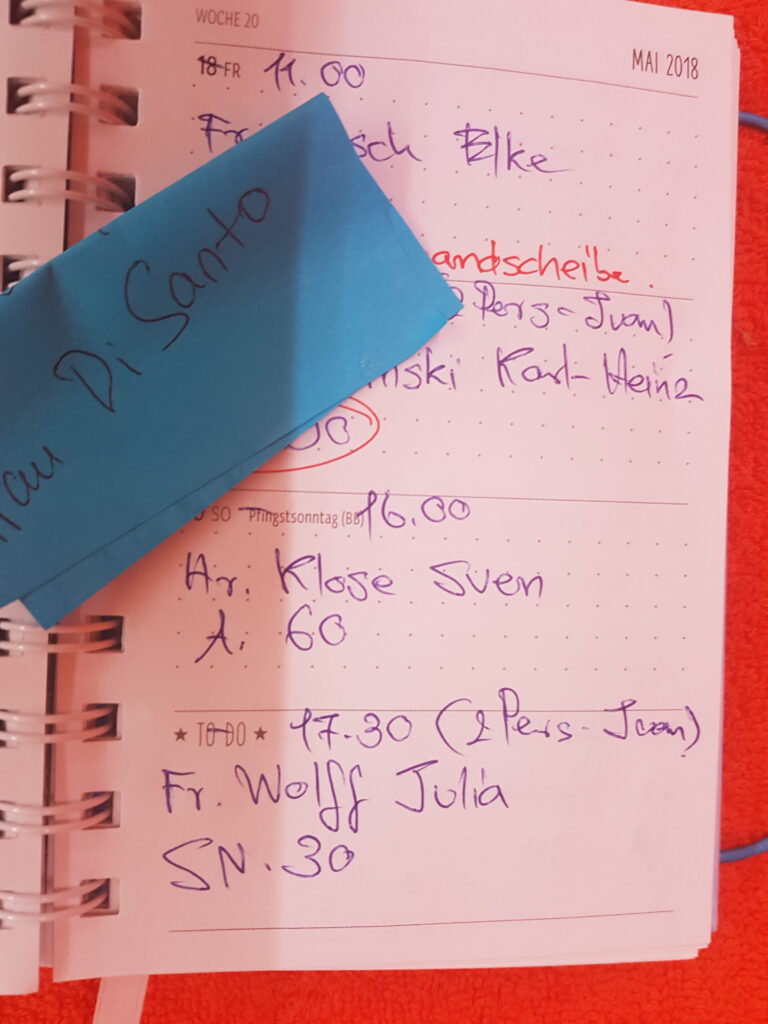 WOCHE 20
MAI 2018
18 FR 11.00
Fr. Elke
2 Pers - Ivan)
Karl-Heinz
SO Pfingstsonntag (BB) 16.00
Hr. Klose Sven
A. 60
★ TO DO ★ 17.30 (2 Pers - Ivan)
Fr. Wolff Julia
SN. 30
Di Santo